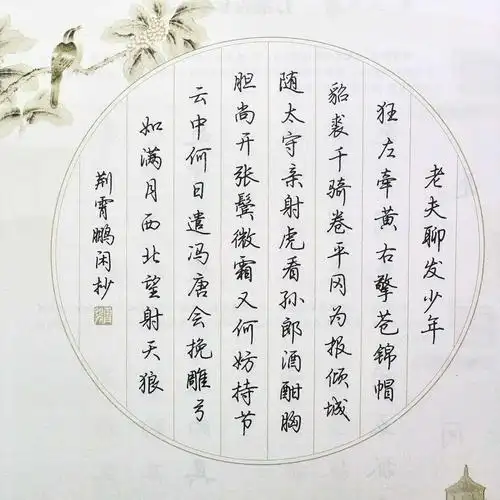 老夫聊发少年
狂左牵黄右擎苍锦帽
貂裘千骑卷平冈为报倾城
随太守亲射虎看孙郎酒酣胸
胆尚开张鬓微霜又何妨持节
云中何日遣冯唐会挽雕弓
如满月西北望射天狼
荆霄鹏闲抄